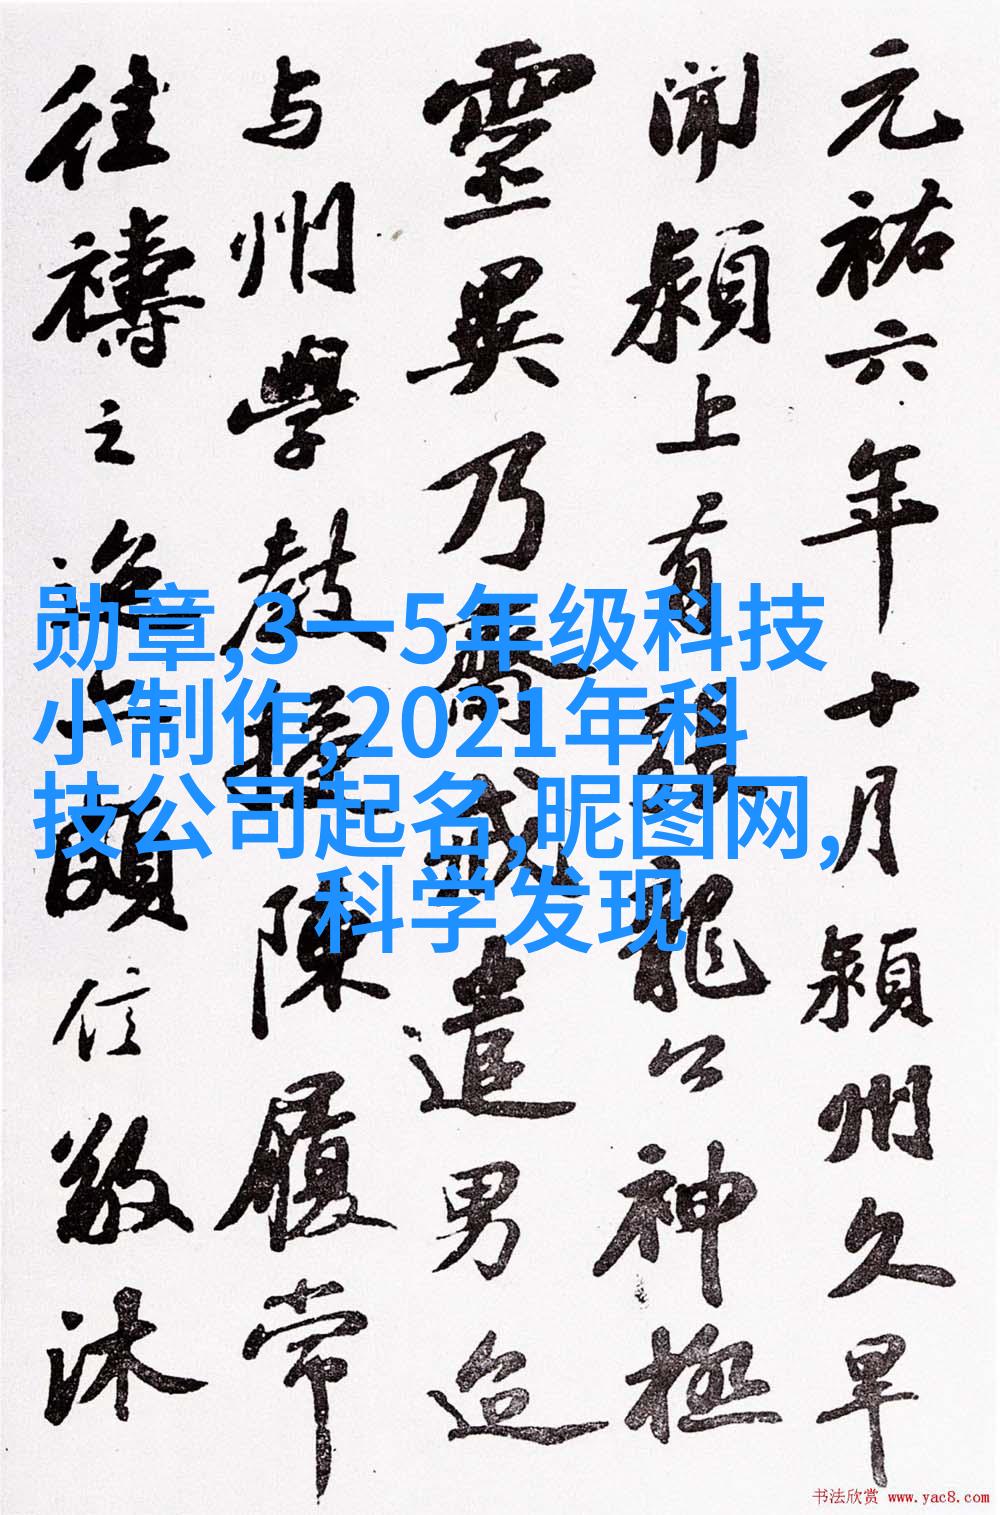 元祐六年十月潁州久旱
聞潁上有張龍公神極
靈異乃齋戒遣男迨
与州學教授陳履常
往禱之迨亦頗信敬沐
勋章,3一5年级科技
小制作,2021年科
技公司起名,昵图网,
科学发现
书法欣赏 www.yac8.com